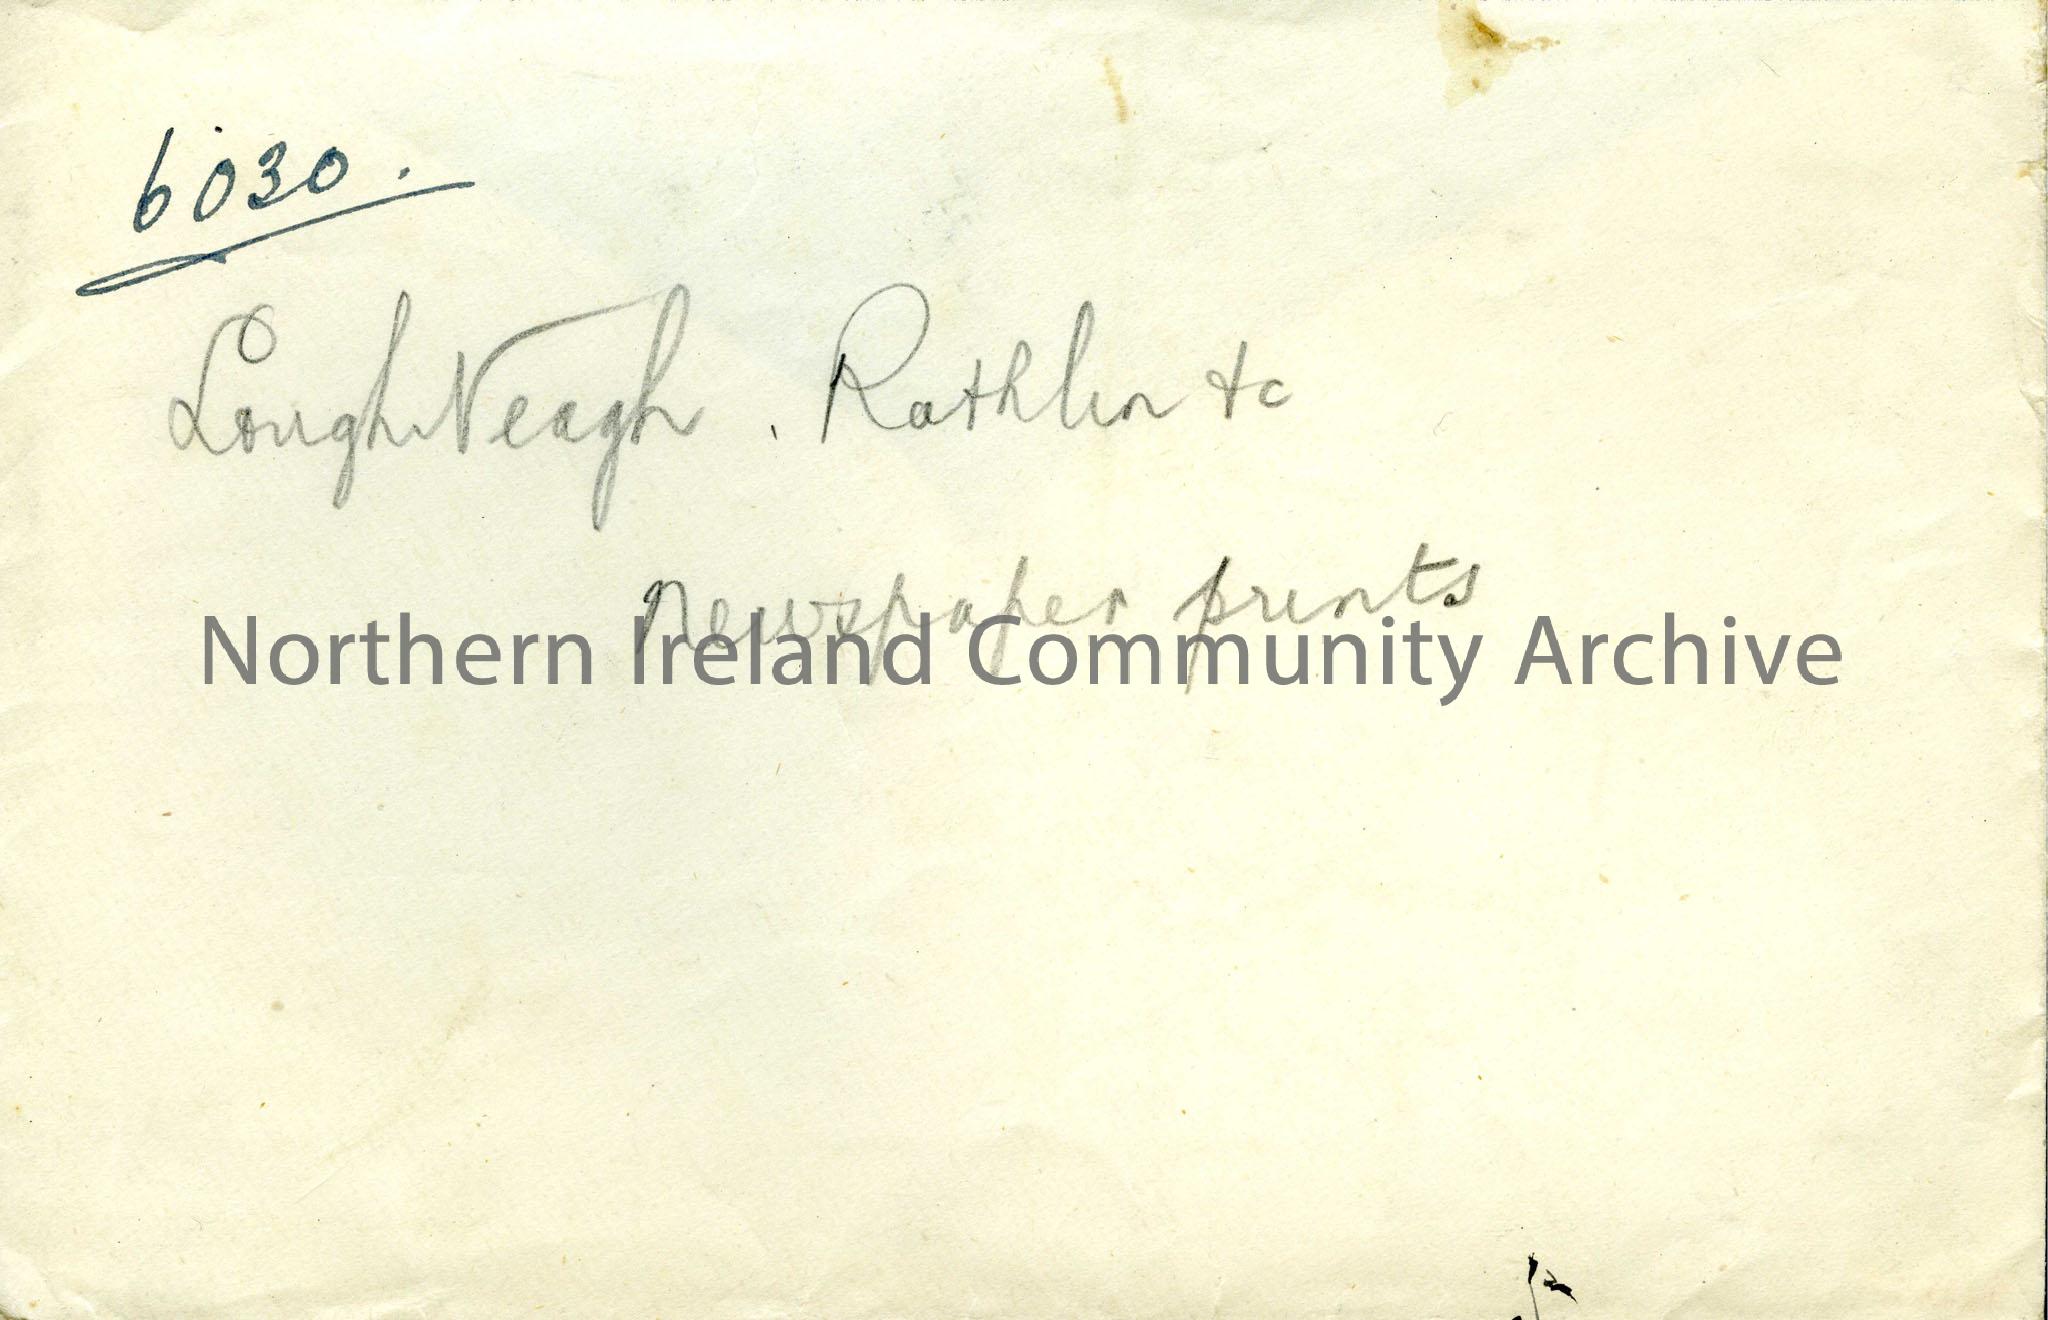 6030.
Lough Neagh. Rathlin &c
newspaper prints
Northern Ireland Community Archive